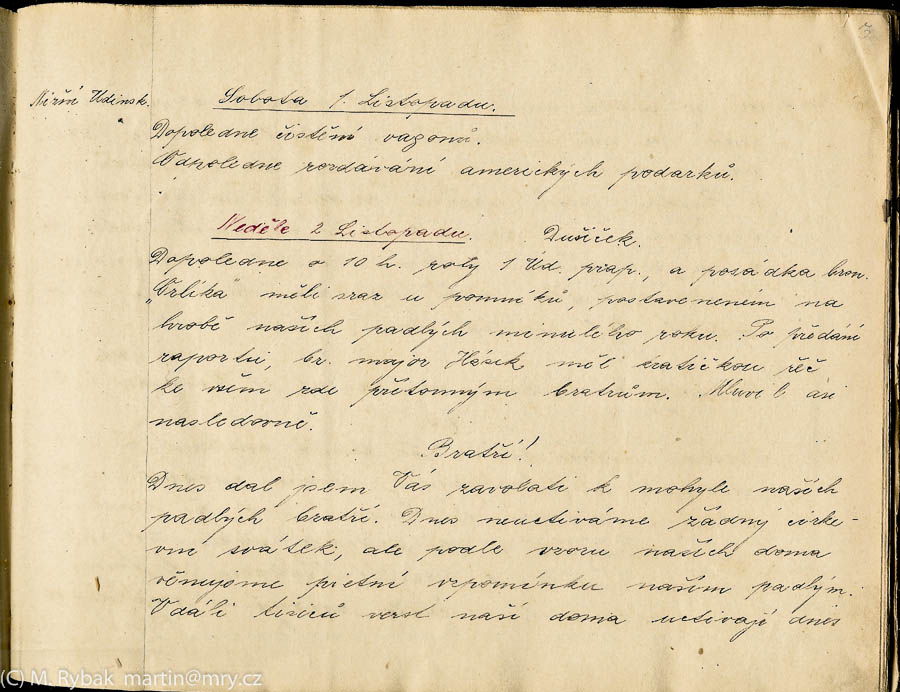 3
Nižní Udinsk.
Sobota 1. Listopadu.
Dopoledne čistění vagonů.
Odpoledne rozdávání amerických podarků.
Neděle 2 Listopadu. Dušiček.
Dopoledne o 10 h. roty 1 Úd. prap., a posádka bron.
"Orlíka" měli sraz u pomníků, postaveneném na
hrobě našich padlých minulého roku. Po předání
raportu, br. major Hásek měl kratičkou řěč
ke všem zde přítomným bratrům. Mluvil asi
nasledovně.
Bratří!
Dnes dal jsem Vás zavolati k mohyle našich
padlých bratří. Dnes neuctíváme žádný círke-
vní svátek, ale podle vzoru našich doma
věnujeme pietní vzpomínku našim padlým.
V dáli tisíců verst naší doma uctívají dnes
(C) M. Rybak martin@mry.cz